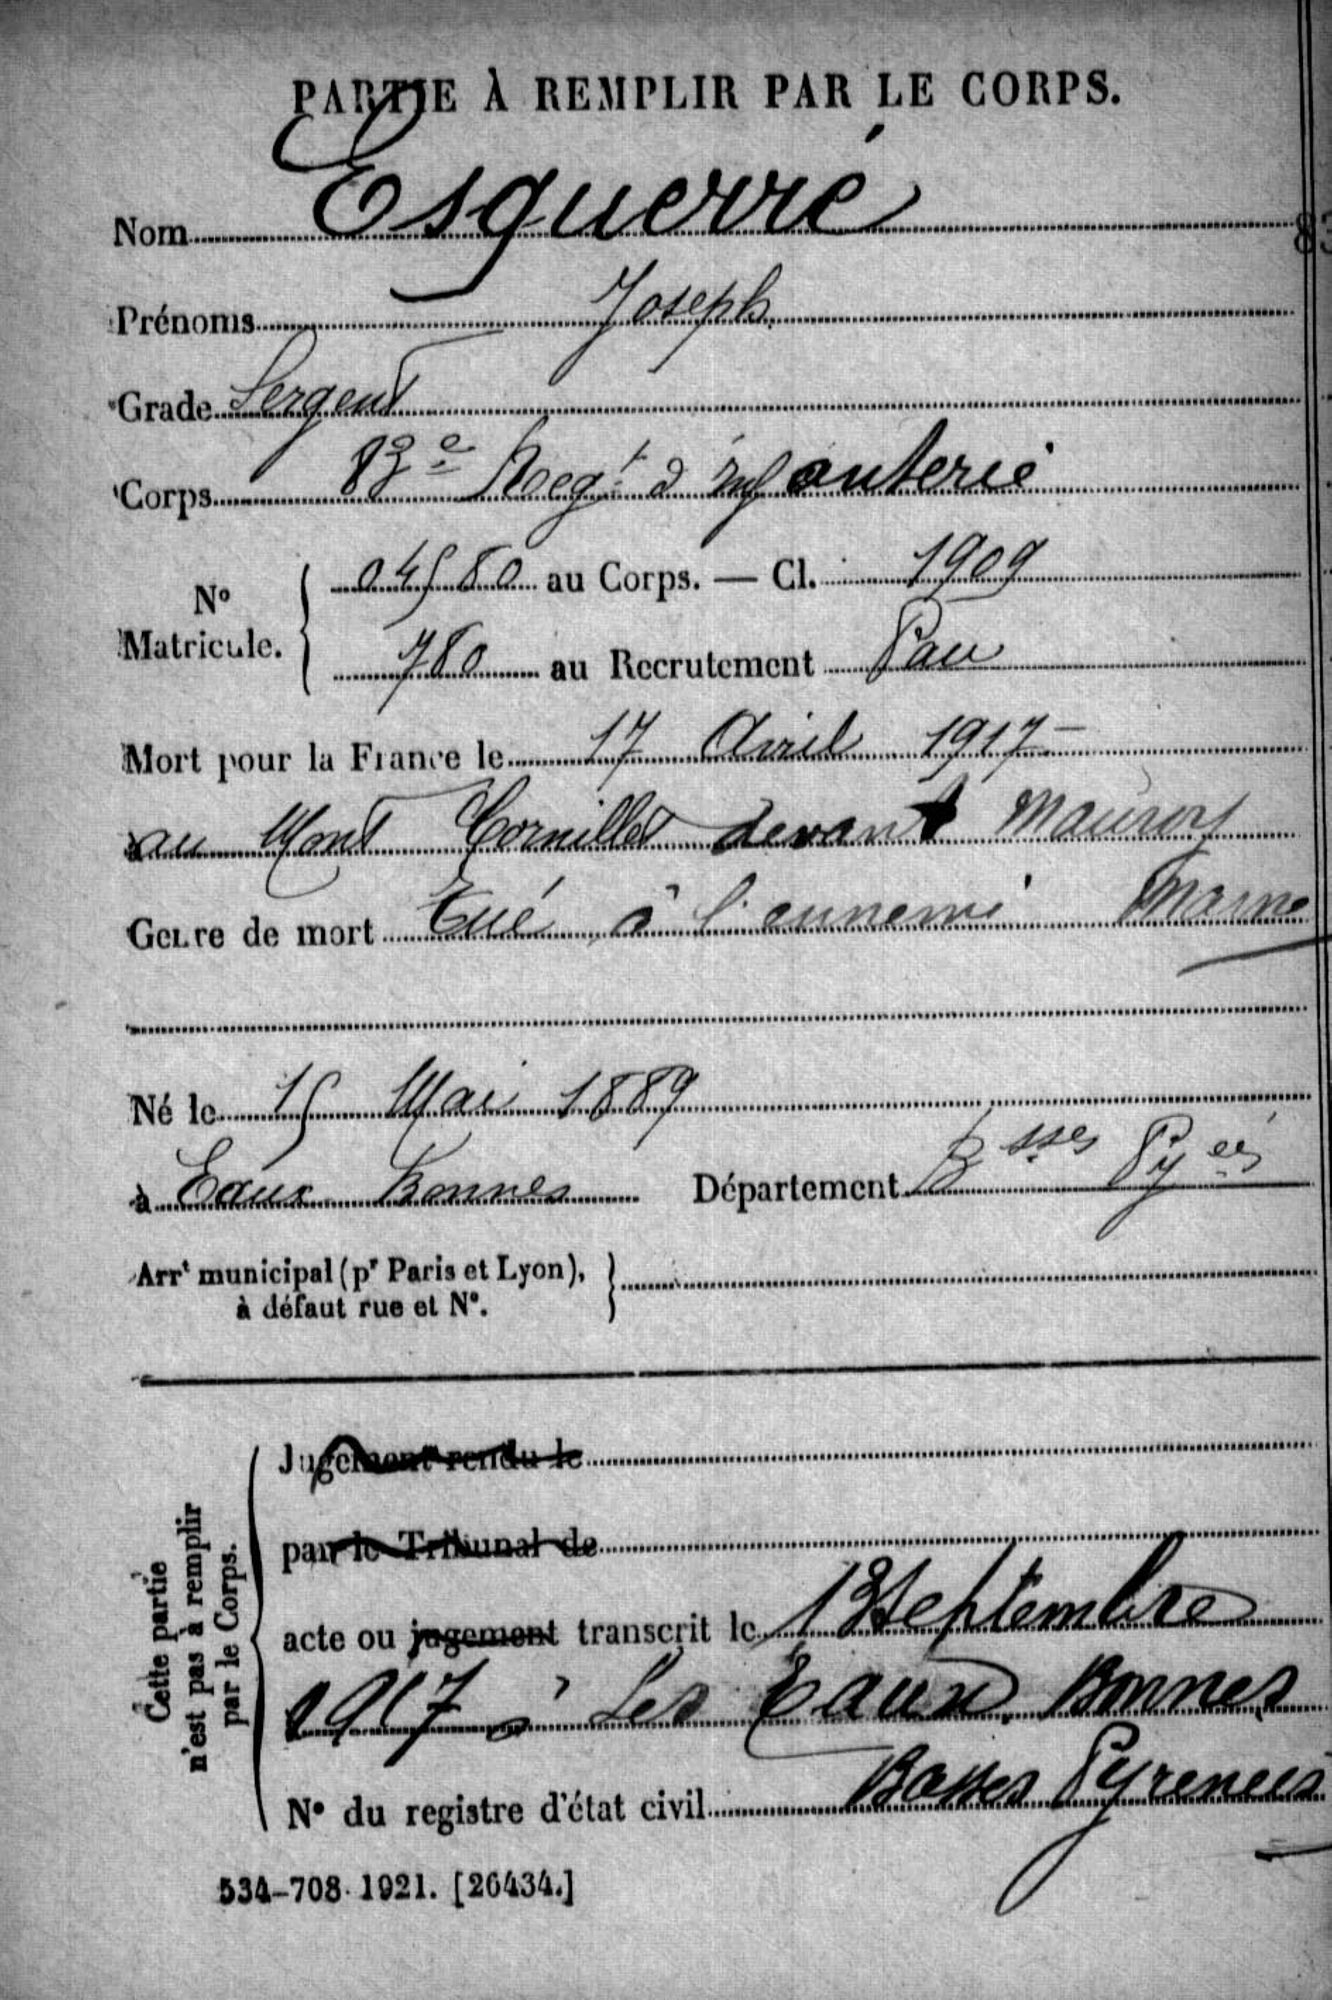 PARTIE À REMPLIR PAR LE CORPS.
Nom Esquerré
83
Prénoms Joseph
Grade Sergent
Corps 83e Regt d'infanterie
No Matricule. 04580 au Corps. — Cl. 1909
780 au Recrutement Pau
Mort pour la France le 17 Avril 1917
au Mont Cornillet devant
Genre de mort Tué à l'ennemi Marne
Né le 15 Mai 1889
à Eaux Bonnes Département Bsses Pyées
Arrt municipal (pr Paris et Lyon),
à défaut rue et N°.
Cette partie
n'est pas à remplir
par le Corps.
Jugement rendu le
par le Tribunal de
acte ou jugement transcrit le 13 Septembre
1917 à Les Eaux Bonnes
Basses Pyrenees
N° du registre d'état civil
534-708. 1921. [26434.]